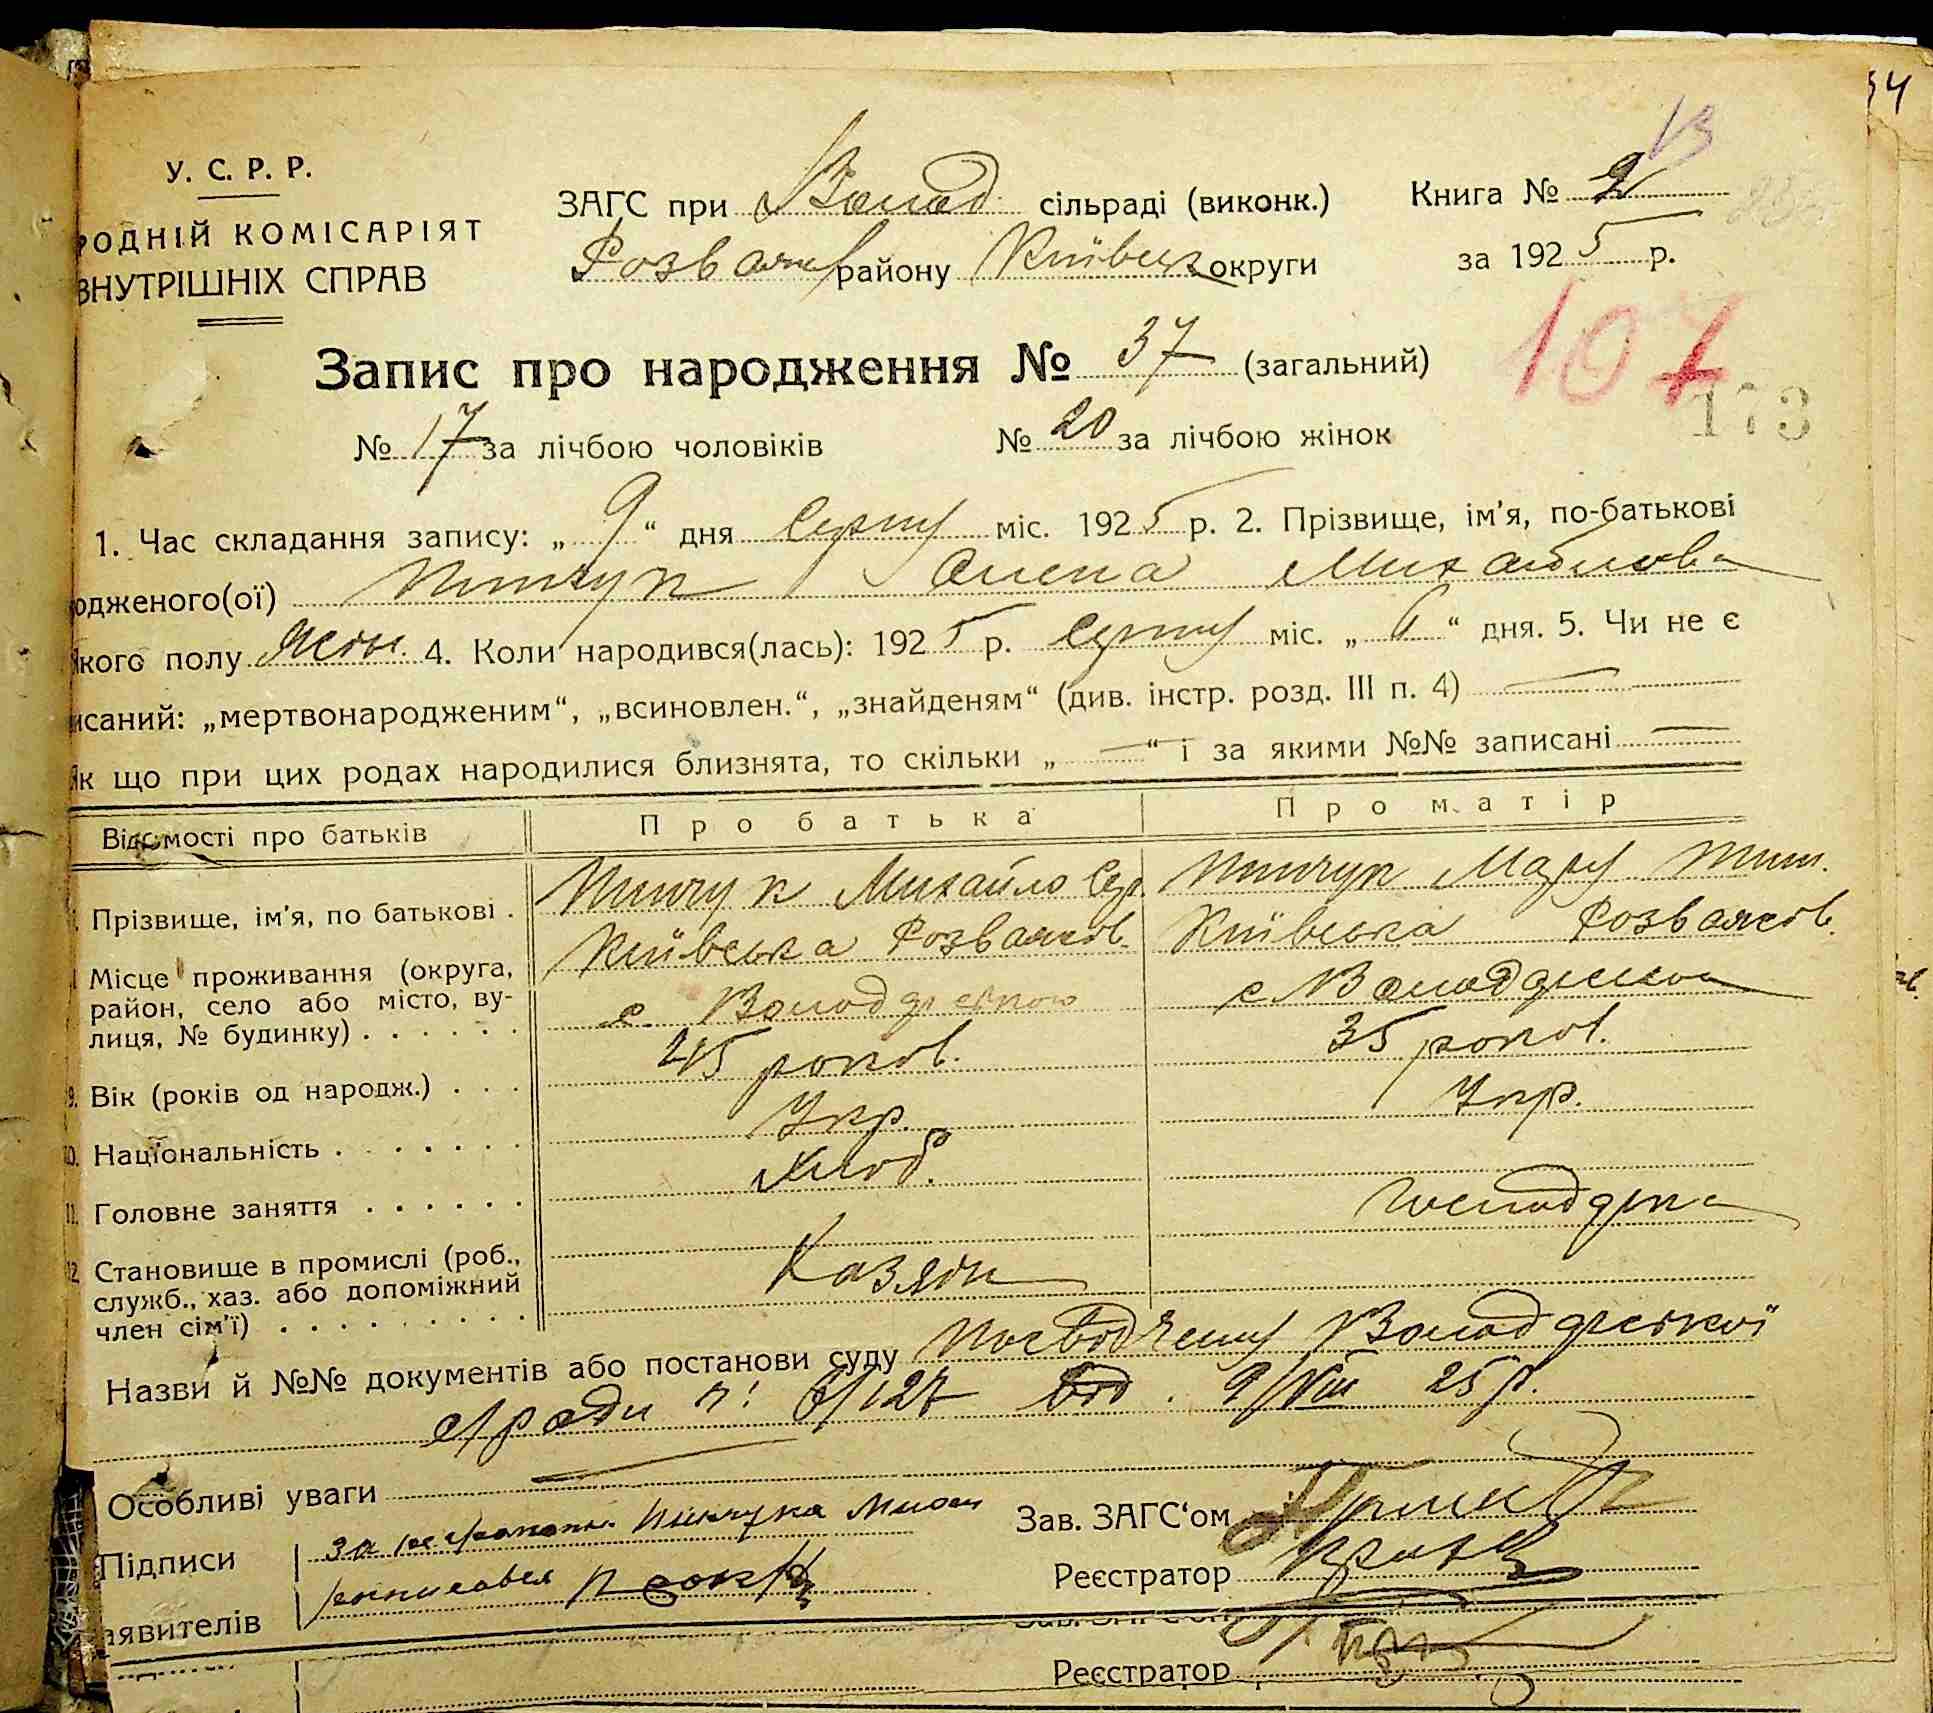 У. С. Р. Р.
РОДНІЙ КОМІСАРІЯТ
ВНУТРІШНІХ СПРАВ
ЗАГС при Волод сільраді (виконк.)
Розваж району Київськ округи
Книга № 2
13
за 1925 р.
Запис про народження № 37 (загальний)
107
173
№ 17 за лічбою чоловіків № 20 за лічбою жінок
1. Час складання запису: „ 9 “ дня Серпня міс. 1925 р. 2. Прізвище, ім'я, по-батькові
одженого(ої) Пинчук Олена Михайлова
якого полу жін. 4. Коли народився(лась): 1925 р. Серпня міс. „ 6 “ дня. 5. Чи не є
исаний: „мертвонародженим“, „всиновлен.“, „знайденям“ (див. інстр. розд. III п. 4) —
Як що при цих родах народилися близнята, то скільки „ — “ і за якими №№ записані —
Відомості про батьків Про батька Про матір
Прізвище, ім'я, по батькові . Пинчук Михайло Сер. Пинчук Мару Тим.
Місце проживання (округа, Київська Розважов. Київська Розважов.
район, село або місто, ву-
лиця, № будинку) . . . . . . с. Володарською с Володарской
9. Вік (років од народж.) . . . 45 роков. 35 роков.
10. Національність . . . . . . . Укр. Укр.
11. Головне заняття . . . . . . Хліб.
12. Становище в промислі (роб., Господарка
служб., хаз. або допоміжний Хазяін
член сім'ї) . . . . . . . . .
Назви й №№ документів або постанови суду Володарської
с/ради 9/VIII 25 р.
Особливі уваги —
Підписи за Пинчука
аявителів росписався
Зав. ЗАГС'ом
Реєстратор
Реєстратор
34